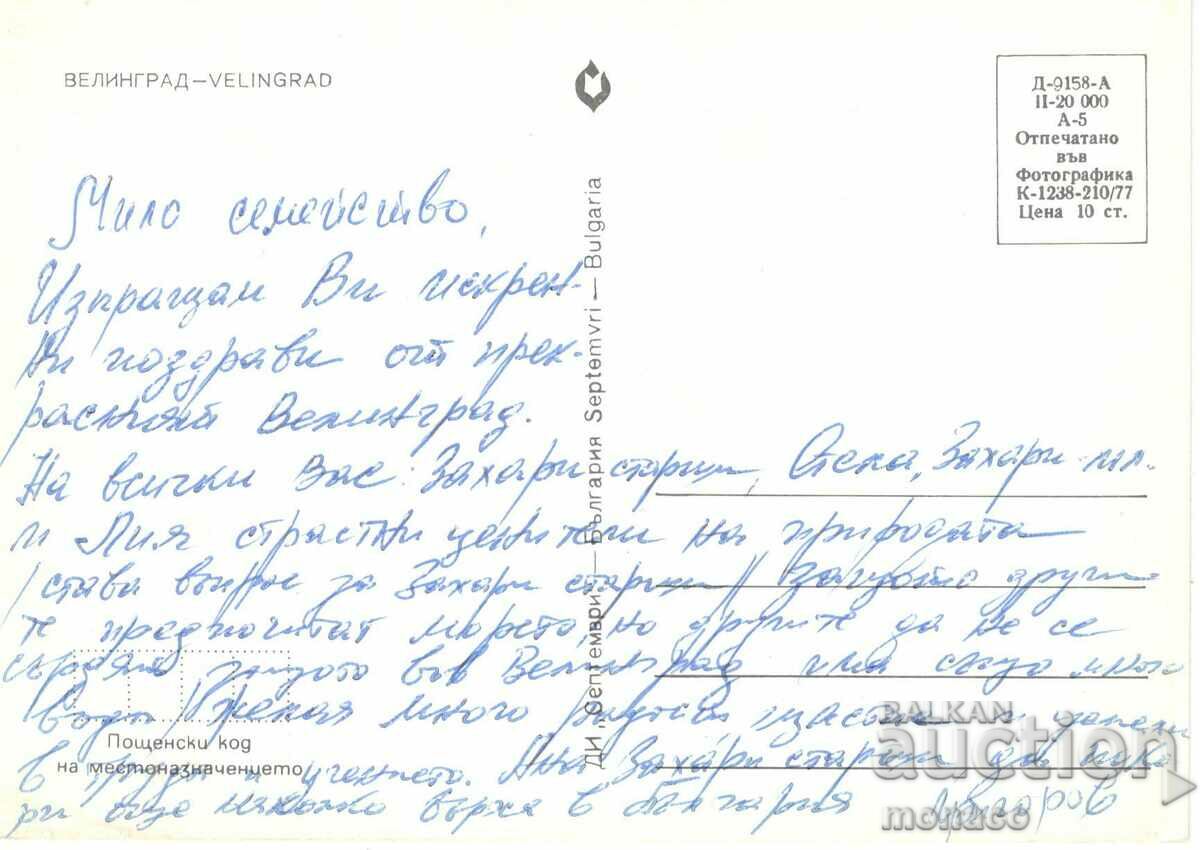 ВЕЛИНГРАД—VELINGRAD
Д-9158-А
II-20 000
А-5
Отпечатано
във
Фотографика
К-1238-210/77
Цена 10 ст.
Мило семейство,
Изпращам Ви искрен-
ни поздрави от прек-
расният Велинград.
На всички Вас: Захари старши, Захари мл.
и Лия страстни ценители на природата
/става въпрос за Захари старши/ Защото други-
те предпочитат морето, но другите да не се
сърдят защото във Велинград има също много
вода. Желая много щастие и успехи
в труда и учението. На Захари старши да поко-
ри още няколко върха в България
ДИ „Септември“ — България Septemvri — Bulgaria
Пощенски код
на местоназначението
BALKAN
auction
monaco